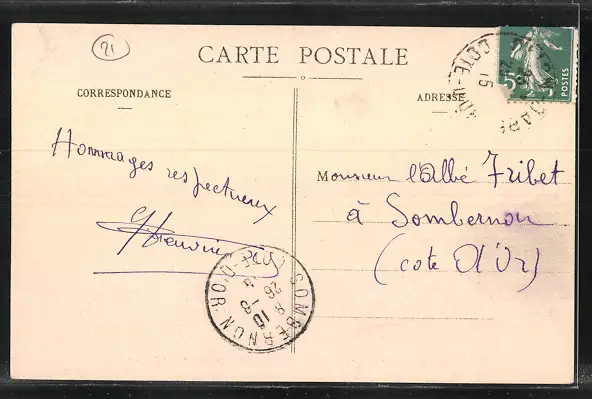 21
CARTE POSTALE
CORRESPONDANCE
ADRESSE
Hommages respectueux
Monsieur l'Abbé Fribet
à Sombernon
(cote d'Or)
SOMBERNON
CÔTE-D'OR
5c
POSTES